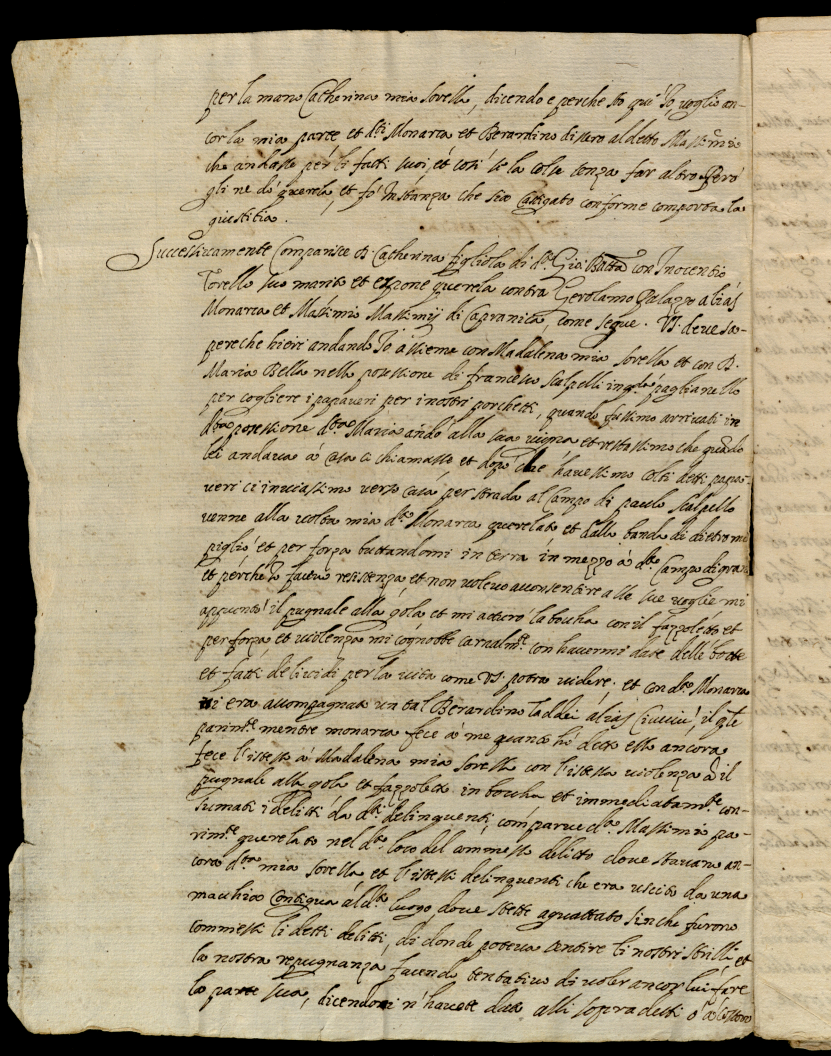 per la mano Catherina mia sorella, dicendo e perche sto qui Io, voglio an-
cor la mia parte et d.ti Monarca et Berardino dissero al detto Massimio
che andasse per li fatti suoi, et così se la colse senza far altro Però
gli ne dò querela, et fò Instanza che sia Castigato conforme comporta la
giustitia.
Successivamente Comparisce D. Catherina figliola di d.o Gio: Batta con Inocentio
Torello suo marito et espone querela contra Gerolamo Palazzo aliàs
Monarca et Massimio Massimij di Capranica, come segue. VS. deve sa-
pere che hieri andando Io assieme con Madalena mia sorella et con D.
Maria Bella nella possessione di francesco Scalpelli in paglianello
per cogliere i papaveri per i nostri porchetti, quando fussimo arrivati in
d.ta possessione d.ta Maria andò alla sua vigna et restassimo che quando
lei andava à Casa ci chiamasse et dopo che havessimo colti detti papa-
veri ci inviassimo verso casa per strada al Campo di paulo Scalpello
venne alla volta mia d.o Monarca querelato et dalla banda di dietro mi
pigliò et per forza buttandomi in terra in mezzo à d.o Campo di grano
et perche Io facevo resistenza et non volevo acconsentire alle sue voglie mi
appuntò il pugnale alla gola et mi atturò la boccha con il fazzoletto et
per forza et violenza mi cognobbe carnalm.te con havermi date delle botte
et fatti de lividi per la vita come VS. potrà videre, et con d.to Monarca
vi era accompagnato un tal Berardino Taddei aliàs Ciucciù, il q.le
parim.te mentre monarca fece à me quanto hò detto esso ancora
fece l'istesso à Madalena mia sorella con l'istessa violenza et il
pugnale alla gola et fazzoletto in boccha et immediatam.te con-
sumati i delitti da d.ti delinquenti, comparve d.o Massimio pa-
rim.te querelato nel d.o loco del commesso delitto dove stavano an-
cora d.ta mia sorella et l'istessi delinquenti che era uscito da una
macchia Contigua al d.o luogo, dove stette aguattato sinche furono
commessi li detti delitti, di donde poteva sentire li nostri strilli et
la nostra repugnanza facendo tentativo di voler ancor lui fare
la parte sua, dicendomi n'havete data alli sopradetti